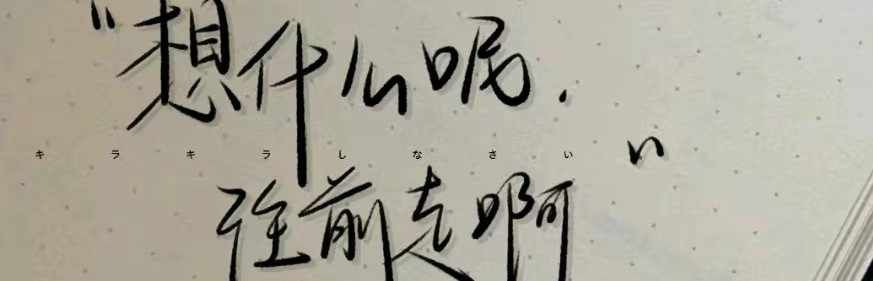 “想什么呢.
キラキラしなさい
往前走啊”